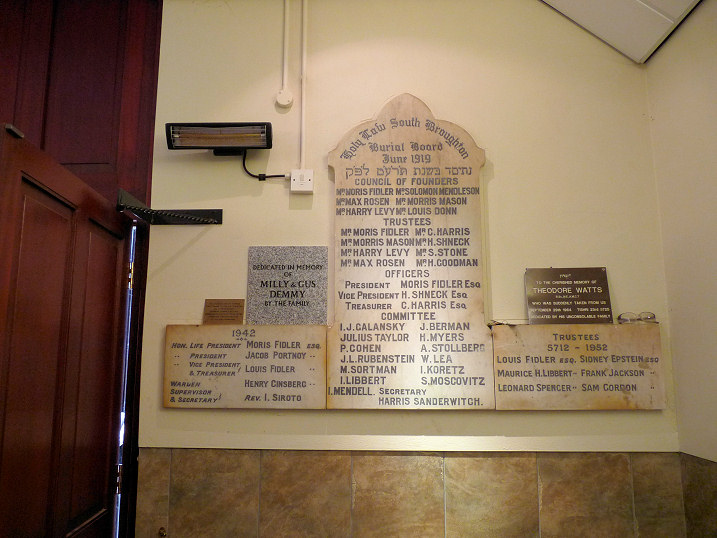 Holy Law South Broughton
Burial Board
June 1919
נתיסד בשנת תרע״ט לפ״ק
COUNCIL OF FOUNDERS
MR MORIS FIDLER MR SOLOMON MENDLESON
MR MAX ROSEN MR MORRIS MASON
MR HARRY LEVY MR LOUIS DONN
TRUSTEES
MR MORIS FIDLER MR C. HARRIS
MR MORRIS MASON MR H. SHNECK
MR HARRY LEVY MR S. STONE
MR MAX ROSEN MR H. GOODMAN
OFFICERS
PRESIDENT MORIS FIDLER ESQ
VICE PRESIDENT H. SHNECK ESQ
TREASURER C. HARRIS ESQ
COMMITTEE
I.J. GALANSKY J. BERMAN
JULIUS TAYLOR H. MYERS
P. COHEN A. STOLLBERG
J.L. RUBENSTEIN W. LEA
M. SORTMAN I. KORETZ
I. LIBBERT S. MOSCOVITZ
I. MENDELL. SECRETARY
HARRIS SANDERWITCH.
DEDICATED IN MEMORY
OF
MILLY & GUS
DEMMY
BY THE FAMILY
1942
HON. LIFE PRESIDENT MORIS FIDLER ESQ.
" PRESIDENT JACOB PORTNOY "
" VICE PRESIDENT
& TREASURER LOUIS FIDLER "
WARDEN HENRY GINSBERG "
SUPERVISOR
& SECRETARY REV. I. SIROTO
TO THE CHERISHED MEMORY OF
THEODORE WATTS
WHO WAS SUDDENLY TAKEN FROM US
DEDICATED BY HIS UNCONSOLABLE FAMILY
TRUSTEES
5712 - 1952
LOUIS FIDLER ESQ. SIDNEY EPSTEIN ESQ
MAURICE H. LIBBERT " FRANK JACKSON "
LEONARD SPENCER " SAM GORDON "